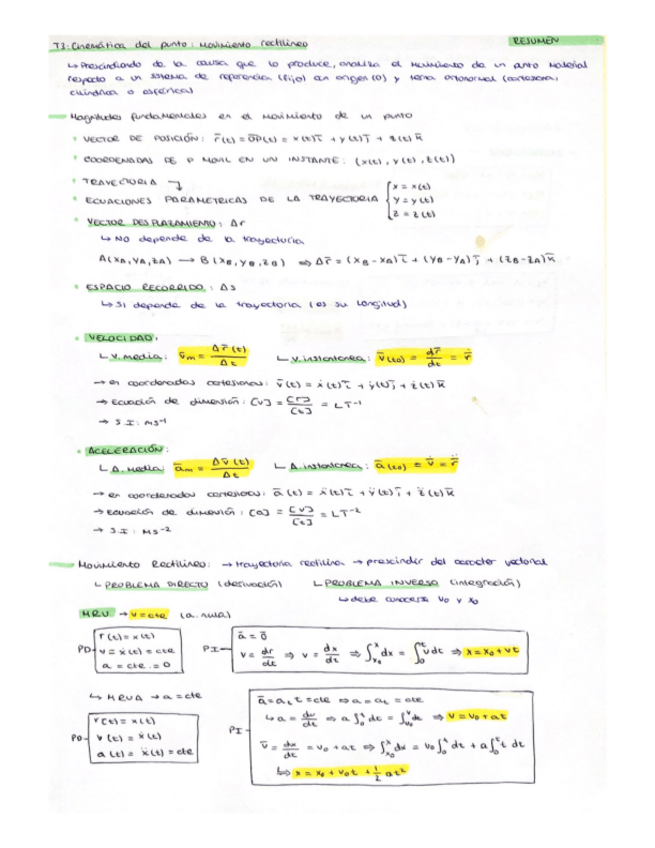 T3: Cinemática del punto: Movimiento rectilíneo RESUMEN
↳ Prescindiendo de la causa que lo produce, analiza el movimiento de un punto material
respecto a un sistema de referencia (fijo) con origen (O) y terna ortonormal (cartesiana,
cilíndrica o esférica)
Magnitudes fundamentales en el movimiento de un punto
• VECTOR DE POSICIÓN: r̄(t) = O̅P̅(t) = x(t)ī + y(t)j̄ + z(t)k̄
• COORDENADAS DE P MOVIL EN UN INSTANTE: (x(t), y(t), z(t))
• TRAYECTORIA
• ECUACIONES PARAMETRICAS DE LA TRAYECTORIA { x = x(t)
y = y(t)
z = z(t)
• VECTOR DESPLAZAMIENTO: Δr
↳ No depende de la trayectoria
A(xA, yA, zA) → B(xB, yB, zB) ⇒ Δr̄ = (xB - xA)ī + (yB - yA)j̄ + (zB - zA)k̄
• ESPACIO RECORRIDO: Δs
↳ Si depende de la trayectoria (es su longitud)
• VELOCIDAD:
∟ V. media: v̄m = Δr̄(t)/Δt ∟ V. instantanea: v̄(t0) = dr̄/dt = ṙ̄
→ en coordenadas cartesianas: v̄(t) = ẋ(t)ī + ẏ(t)j̄ + ż(t)k̄
→ Ecuación de dimensión: [v] = [r]/[t] = LT⁻¹
→ S.I: ms⁻¹
• ACELERACIÓN:
∟ A. Media: ām = Δv̄(t)/Δt ∟ A. instantanea: ā(t0) = v̄̇ = r̄̈
→ en coordenadas cartesianas: ā(t) = ẍ(t)ī + ÿ(t)j̄ + z̈(t)k̄
→ Ecuación de dimensión: [a] = [v]/[t] = LT⁻²
→ S.I: MS⁻²
Movimiento Rectilíneo: → trayectoria rectilínea → prescindir del caracter vectorial
∟ PROBLEMA DIRECTO (derivación) ∟ PROBLEMA INVERSO (integración)
↳ debe conocerse v0 y x0
MRU → v = cte (a. nula)
PD- r(t) = x(t)
v = ẋ(t) = cte
a = cte = 0
PI- ā = 0̄
v = dr/dt ⇒ v = dx/dt ⇒ ∫ₓ₀ˣ dx = ∫₀ᵗ v dt ⇒ x = x0 + vt
↳ MRUA → a = cte
PD- r(t) = x(t)
v(t) = ẋ(t)
a(t) = ẍ(t) = cte
PI- ā = at t = cte ⇒ a = at = cte
↳ a = dv/dt ⇒ a ∫₀ᵗ dt = ∫ᵥ₀ᵛ dv ⇒ v = v0 + at
v̄ = dx/dt = v0 + at ⇒ ∫ₓ₀ˣ dx = v0 ∫₀ᵗ dt + a ∫₀ᵗ t dt
↳ x = x0 + v0t + 1/2 at²